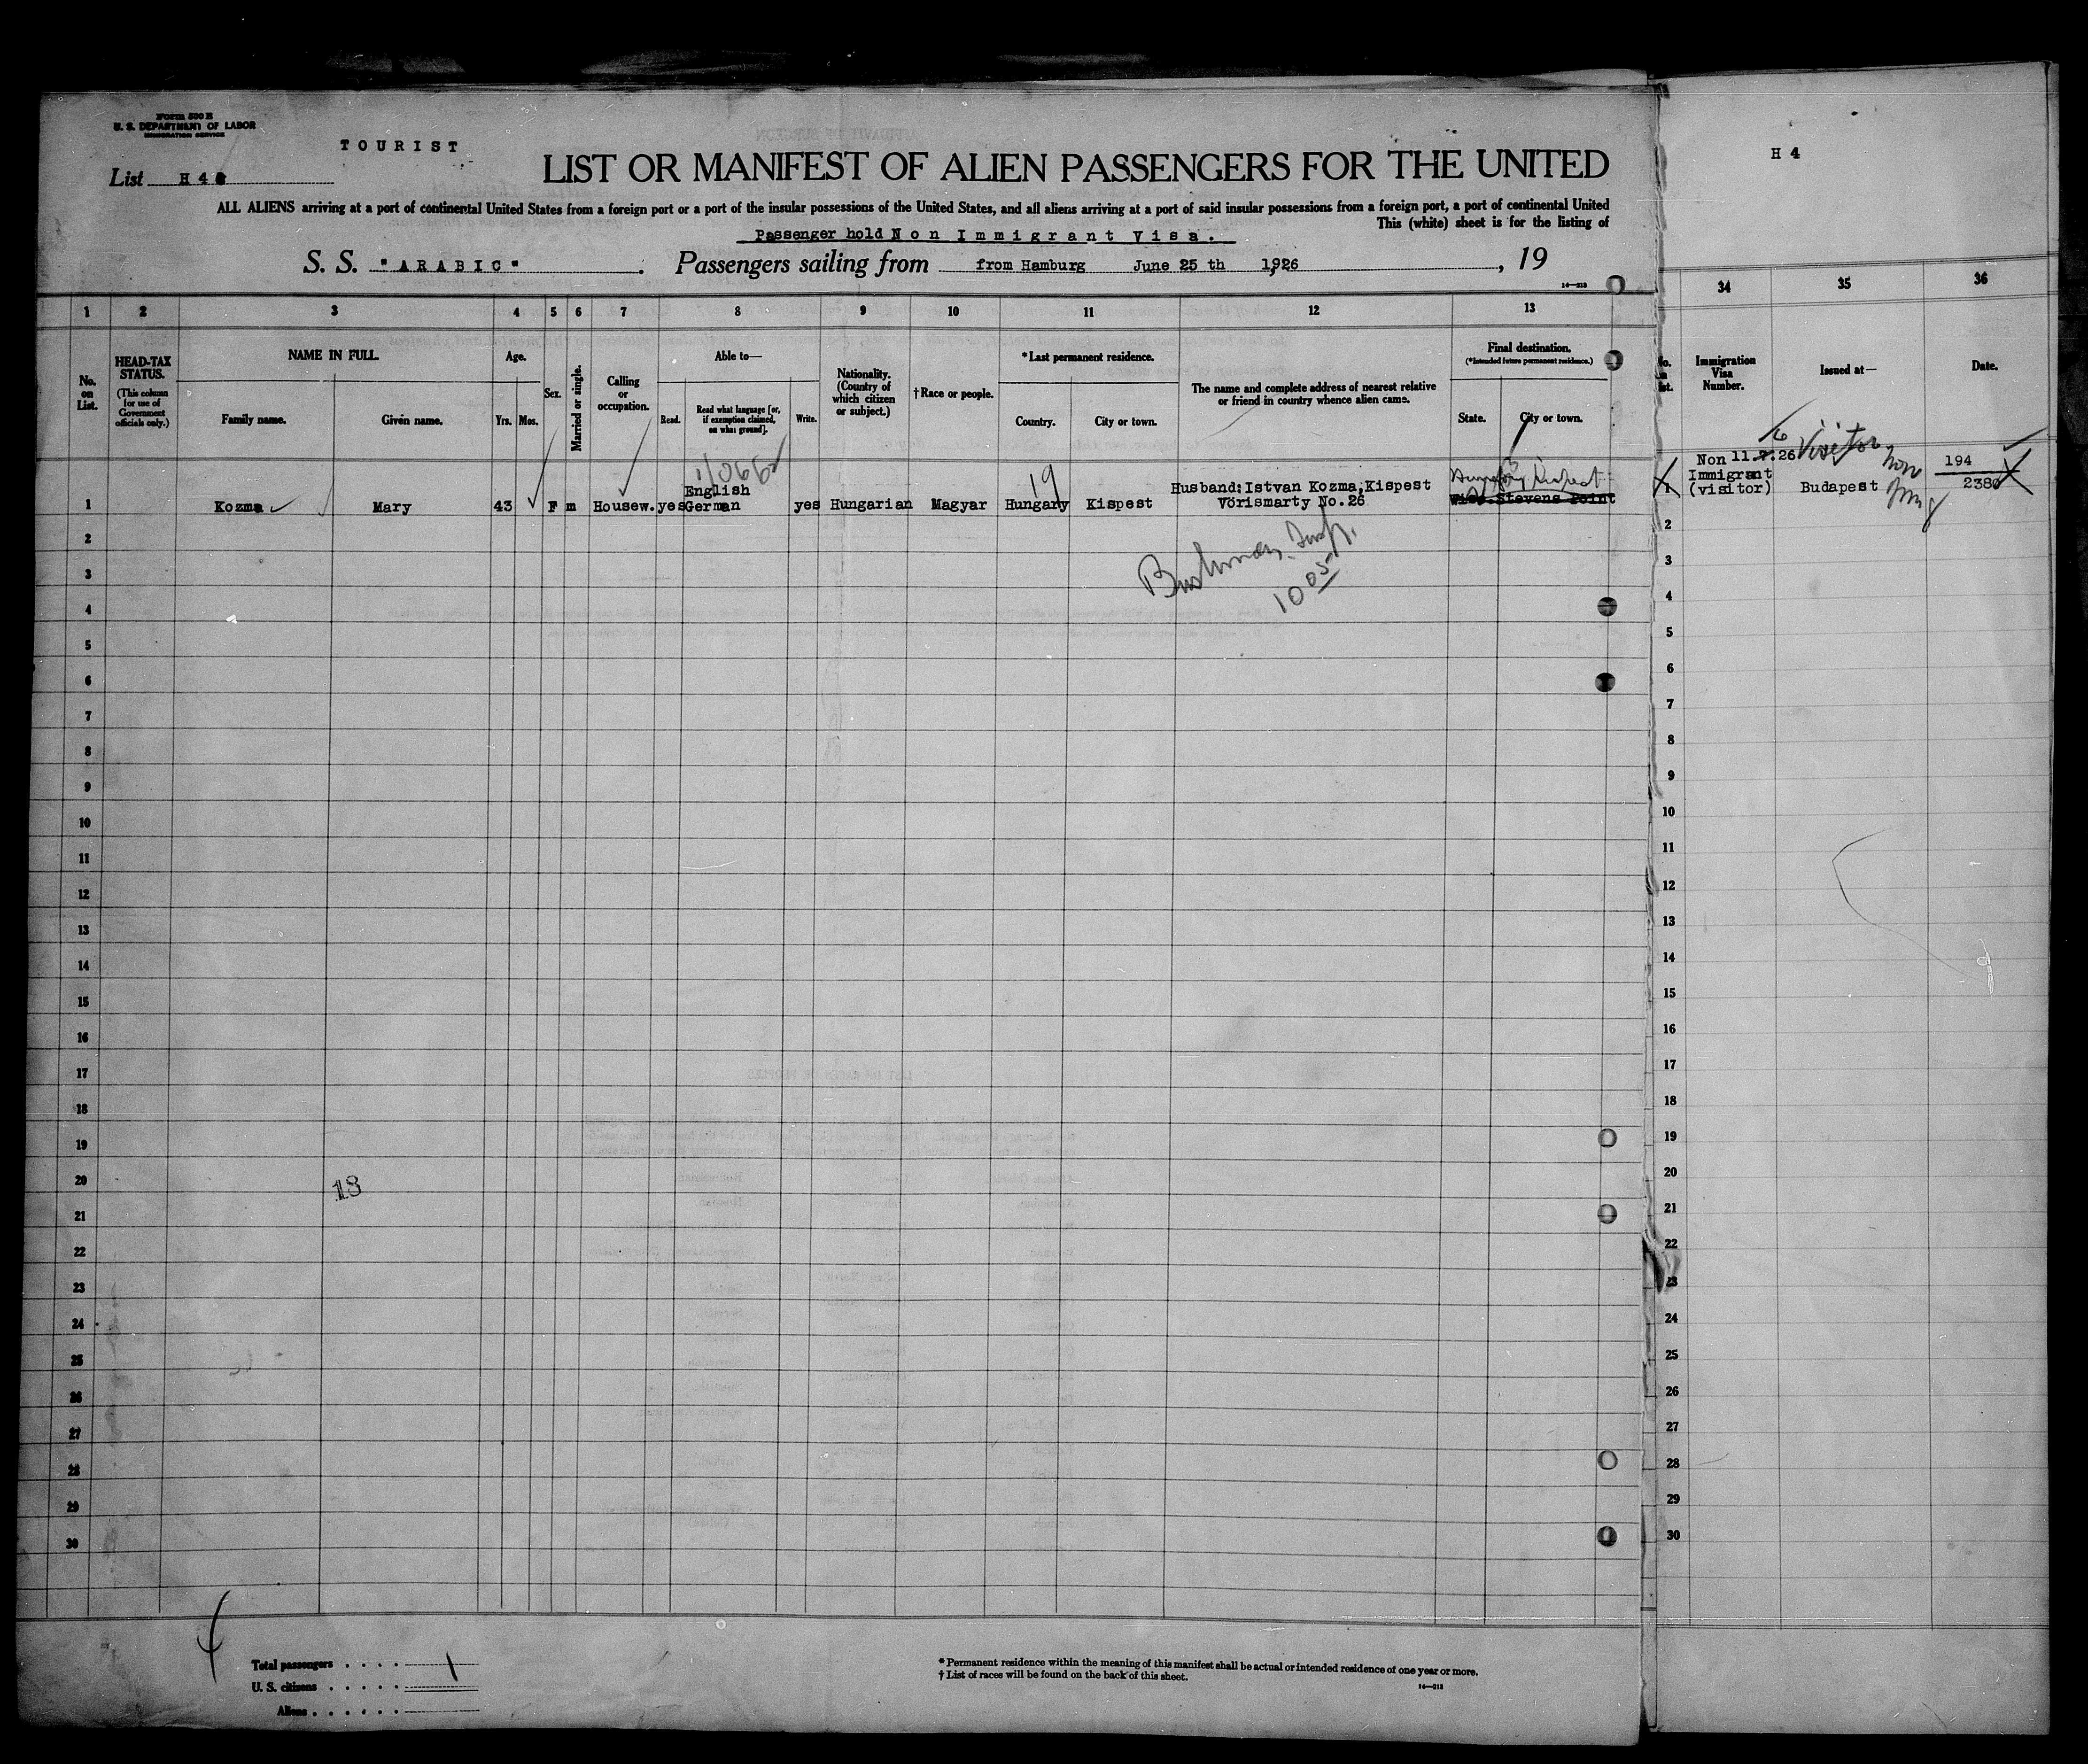 Form 500 B
U. S. DEPARTMENT OF LABOR
IMMIGRATION SERVICE
TOURIST
List H 4
LIST OR MANIFEST OF ALIEN PASSENGERS FOR THE UNITED
ALL ALIENS arriving at a port of continental United States from a foreign port or a port of the insular possessions of the United States, and all aliens arriving at a port of said insular possessions from a foreign port, a port of continental United
This (white) sheet is for the listing of
Passenger hold Non Immigrant Visa.
S. S. "ARABIC". Passengers sailing from from Hamburg June 25 th 1926, 19
14—213
1 2 3 4 5 6 7 8 9 10 11 12 13
No. on List.
HEAD-TAX STATUS.
(This column for use of Government officials only.)
NAME IN FULL.
Family name. Given name.
Age.
Yrs. Mos.
Sex.
Married or single.
Calling or occupation.
Able to—
Read. Read what language [or, if exemption claimed, on what ground]. Write.
Nationality. (Country of which citizen or subject.)
† Race or people.
* Last permanent residence.
Country. City or town.
The name and complete address of nearest relative or friend in country whence alien came.
Final destination.
(*Intended future permanent residence.)
State. City or town.
19
1 Kozma Mary 43 F m Housew. yes English German yes Hungarian Magyar Hungary Kispest Husband: Istvan Kozma, Kispest Vörismarty No. 26 Wisc. Stevens Point
10 05
2
3
4
5
6
7
8
9
10
11
12
13
14
15
16
17
18
19
20
21
22
23
24
25
26
27
28
29
30
18
Total passengers . . . . 1
U. S. citizens . . . . .
Aliens . . . . . .
* Permanent residence within the meaning of this manifest shall be actual or intended residence of one year or more.
† List of races will be found on the back of this sheet.
14—213
H 4
34 35 36
Immigration Visa Number.
Issued at—
Date.
6 Visitor
Non 11.7.26
Immigrant
(visitor) Budapest
194
2380
2
3
4
5
6
7
8
9
10
11
12
13
14
15
16
17
18
19
20
21
22
23
24
25
26
27
28
29
30